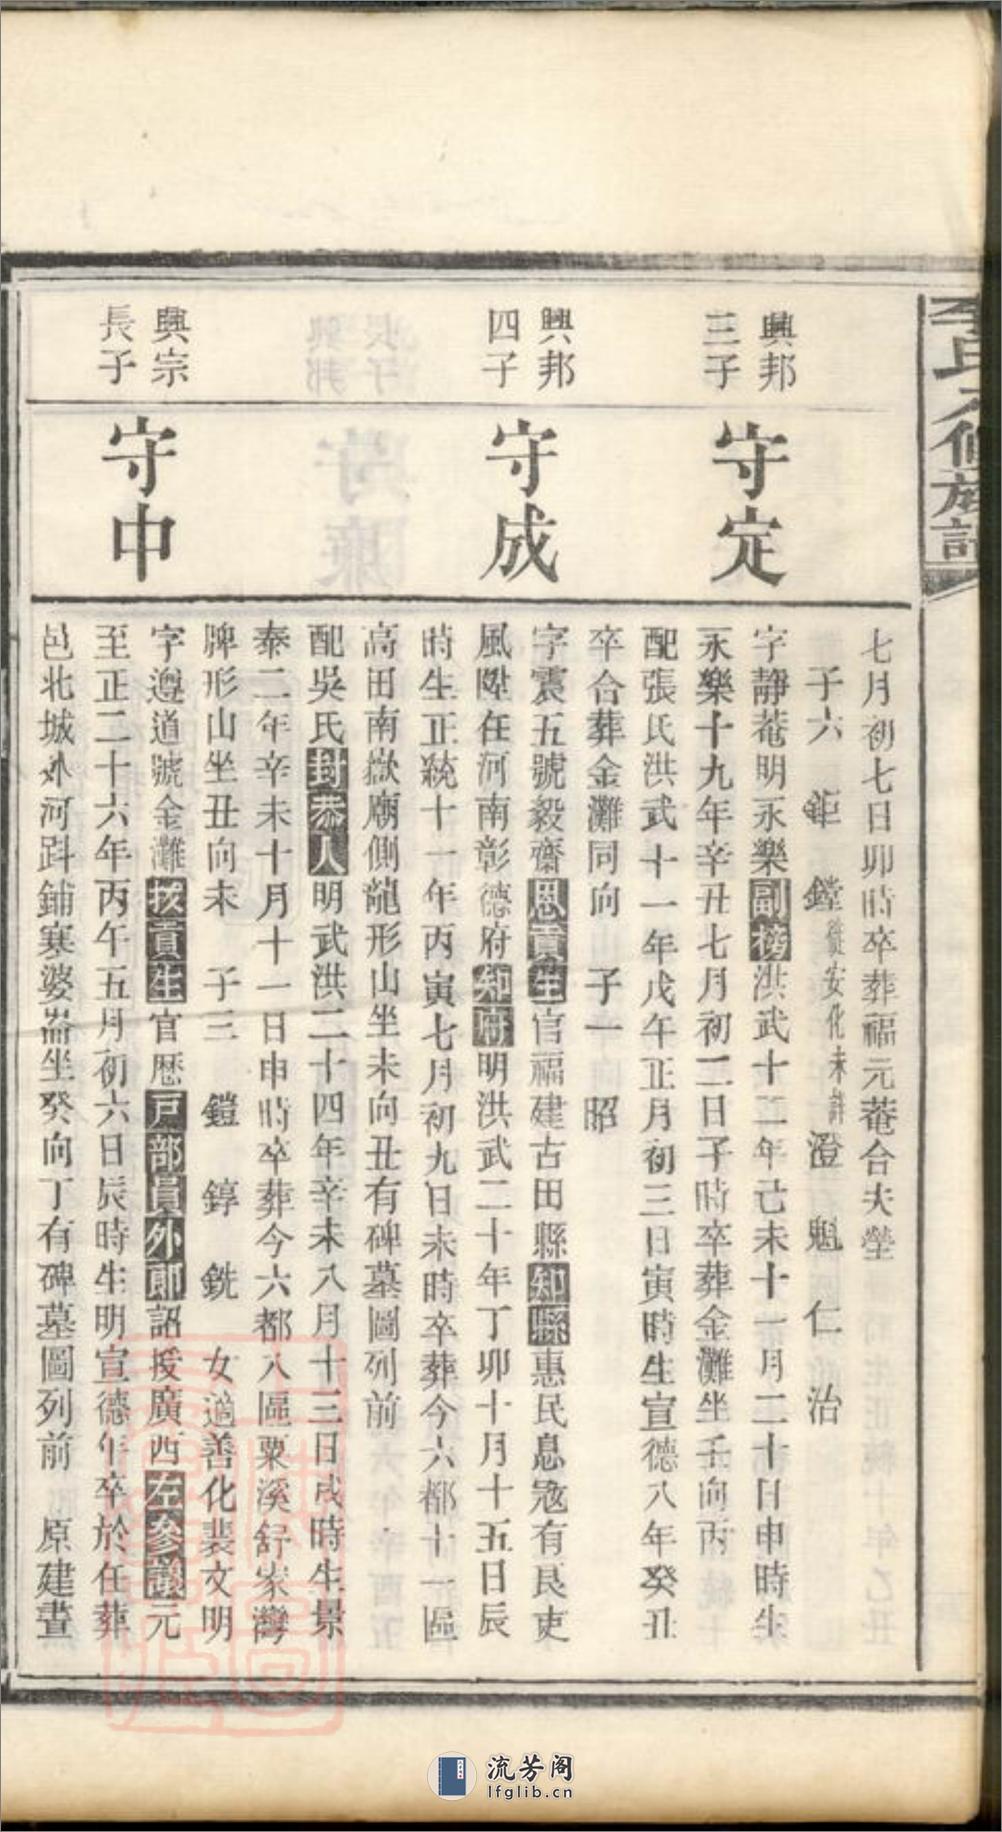 李氏六修族譜
七月初七日卯時卒葬福元菴合夫塋
子六 鉅 鏜 從安化未詳 澄 魁 仁 治
興邦
三子
守定
字靜菴明永樂副榜洪武十二年己未十一月二十日申時生
永樂十九年辛丑七月初二日子時卒葬金灘坐壬向丙
配張氏洪武十一年戊午正月初三日寅時生宣德八年癸丑
卒合葬金灘同向 子一 昭
興邦
四子
守成
字震五號毅齋恩貢生官福建古田縣知縣惠民息寇有良吏
風陞任河南彰德府知府明洪武二十年丁卯十月十五日辰
時生正統十一年丙寅七月初九日未時卒葬今六都十一區
高田南嶽廟側龍形山坐未向丑有碑墓圖列前
配吳氏封恭人明武洪二十四年辛未八月十三日戌時生景
泰二年辛未十月十一日申時卒葬今六都八區粟溪舒家灣
牌形山坐丑向未 子三 鎧 錞 銑 女適善化裴文明
興宗
長子
守中
字遵道號金灘拔貢生官歷戸部員外郎詔援廣西左參議元
至正二十六年丙午五月初六日辰時生明宣德年卒於任葬
邑北城外河㪷鋪寨婆崙坐癸向丁有碑墓圖列前 原建晝
流芳阁
lfglib.cn